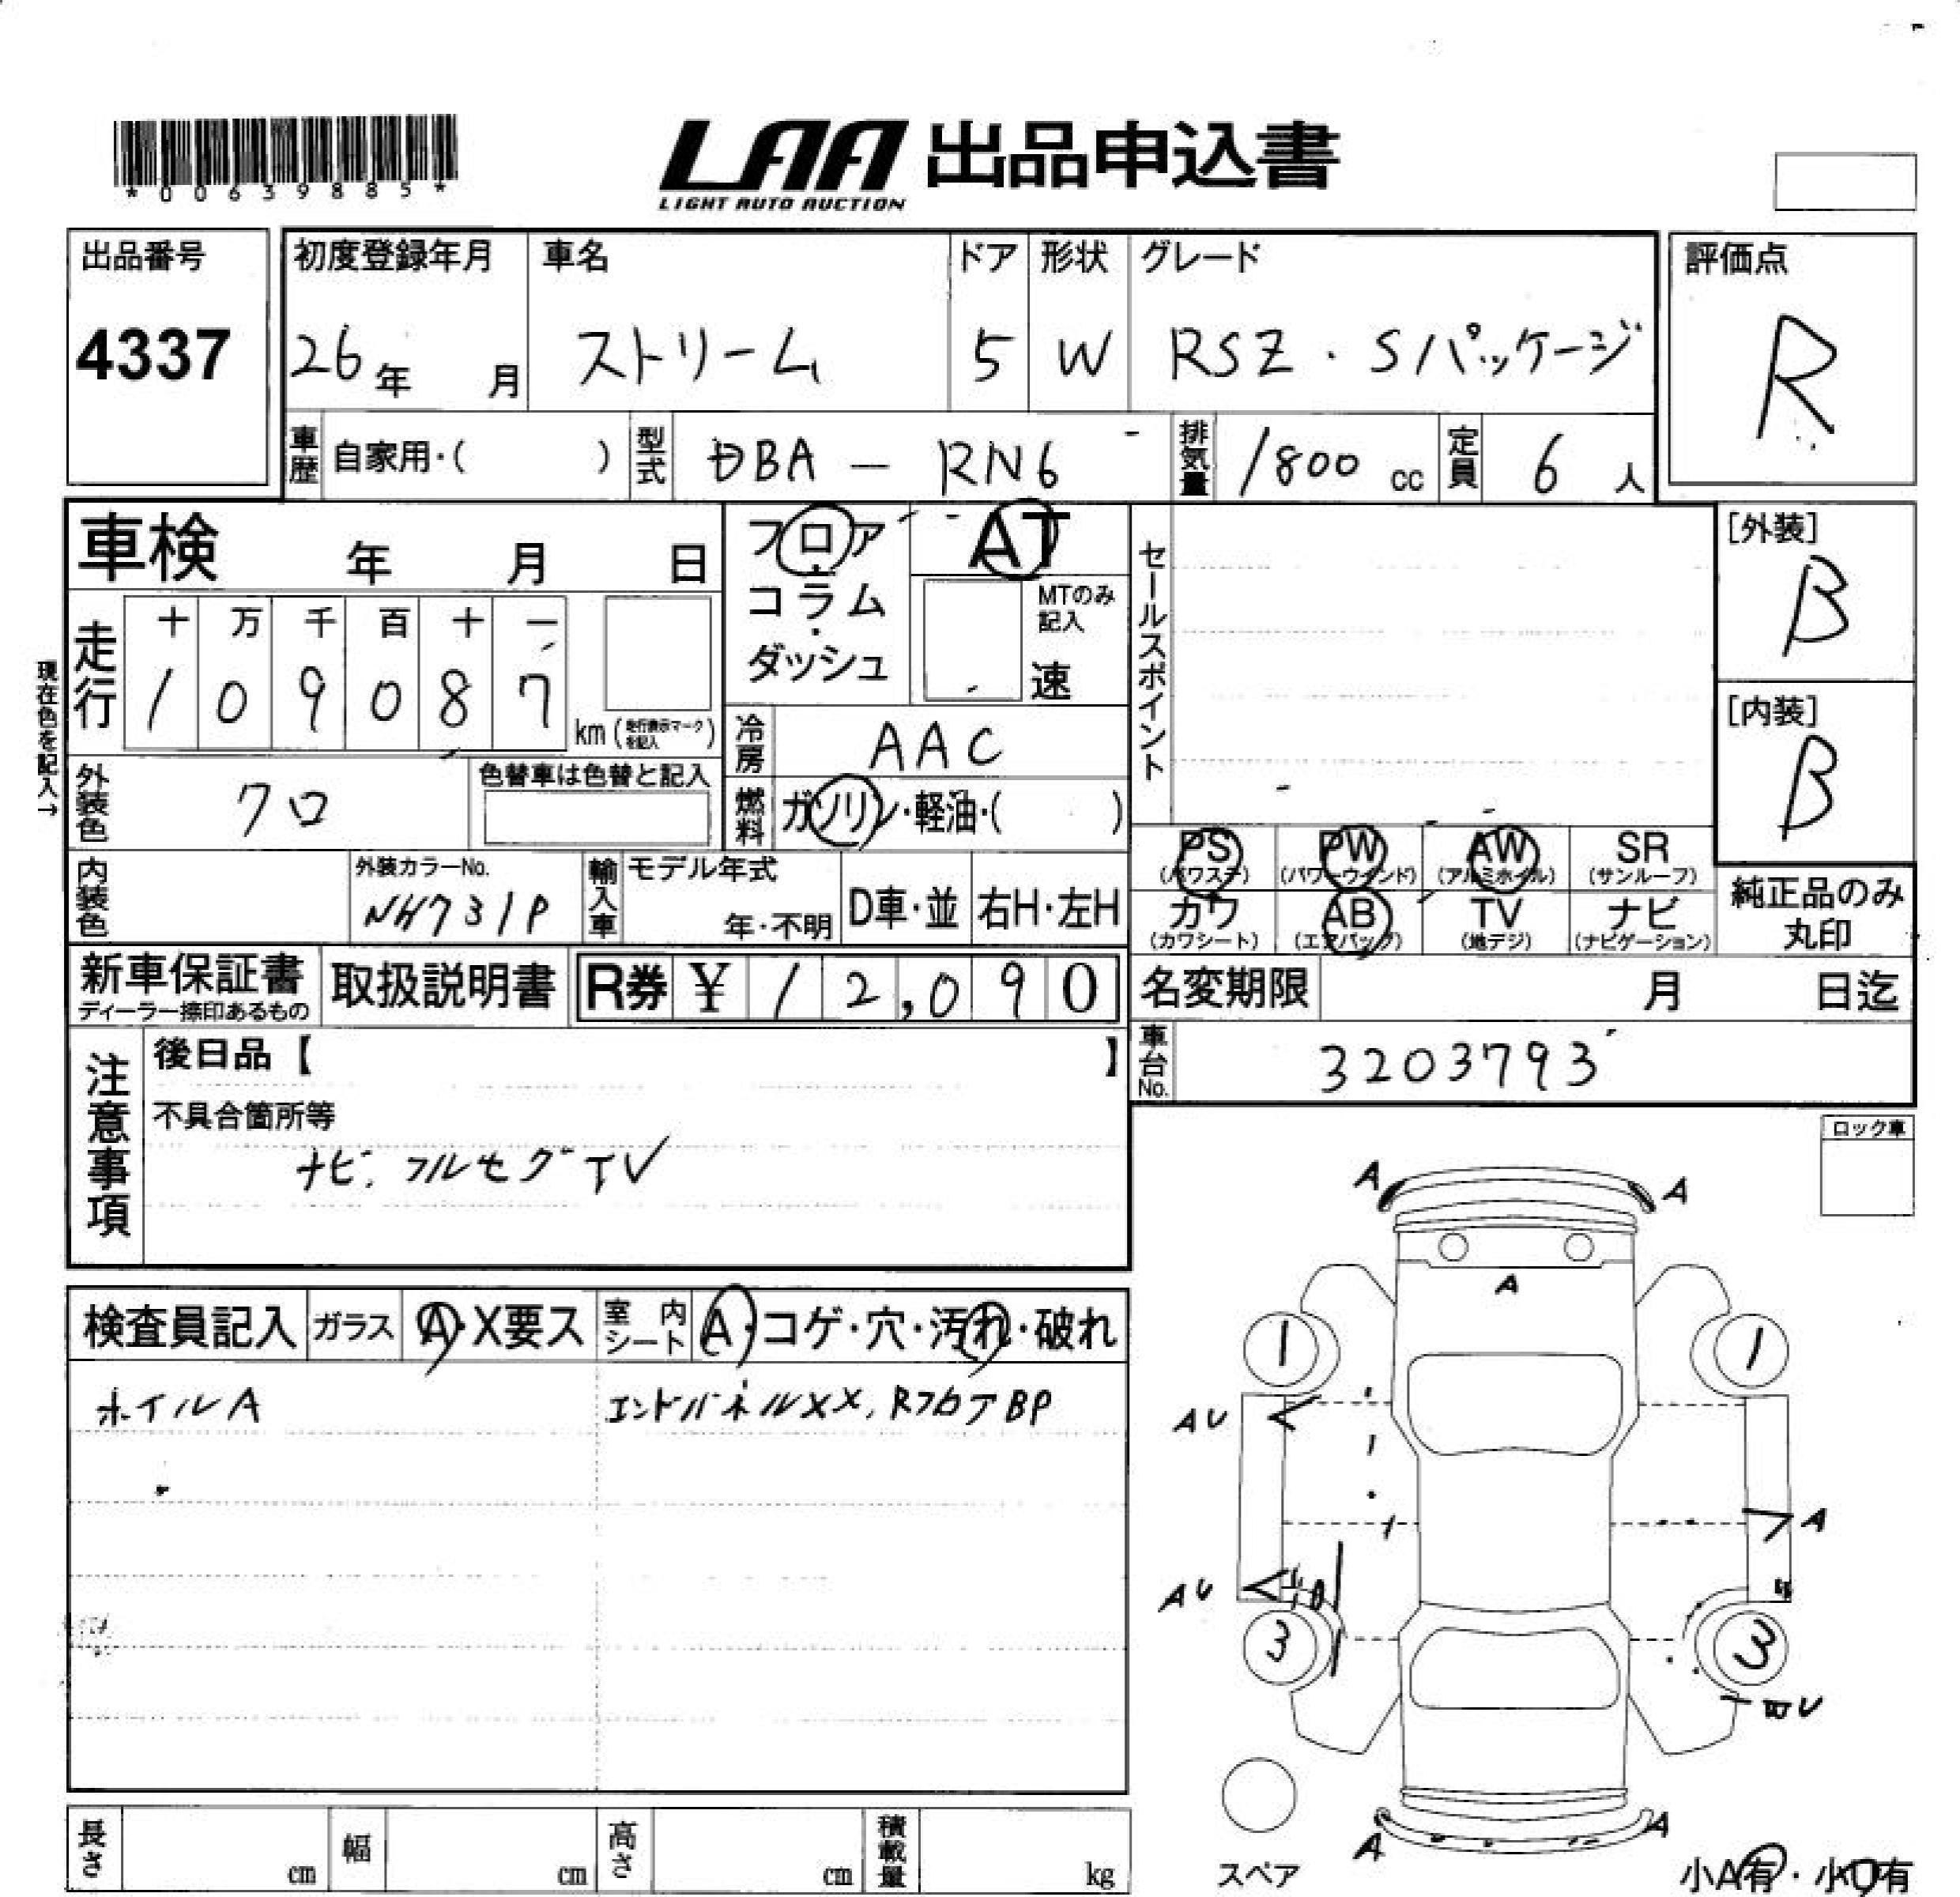 *00639885*
LAA 出品申込書
LIGHT AUTO AUCTION
出品番号
4337
初度登録年月
26年 月
車名
ストリーム
ドア
5
形状
W
グレード
RSZ・Sパッケージ
評価点
R
車歴 自家用・( )
型式 DBA - RN6
排気量 1800 cc
定員 6 人
車検 年 月 日
フロア・コラム・ダッシュ
AT
MTのみ記入
速
セールスポイント
[外装]
B
[内装]
B
現在色を記入→
走行
十 万 千 百 十 一
1 0 9 0 8 7
km (走行表示マークを記入)
冷房 AAC
外装色 クロ
色替車は色替と記入
燃料 ガソリン・軽油・( )
内装色
外装カラーNo.
NH731P
輸入車
モデル年式
年・不明
D車・並
右H・左H
PS (パワステ)
PW (パワーウインド)
AW (アルミホイル)
SR (サンルーフ)
カワ (カワシート)
AB (エアバッグ)
TV (地デジ)
ナビ (ナビゲーション)
純正品のみ丸印
新車保証書
ディーラー捺印あるもの
取扱説明書
R券 ¥ 12,090
名変期限 月 日迄
車台No. 3203793
注意事項
後日品【 】
不具合箇所等
ナビ. フルセグTV
ロック車
検査員記入
ガラス A・X要ス
室内シート A・コゲ・穴・汚れ・破れ
ホイルA
エンドパネルXX, RフロアBP
A A
A
1 1
AU
A
AU
3 3
U
A A
スペア
小A有・小U有
長さ cm
幅 cm
高さ cm
積載量 kg